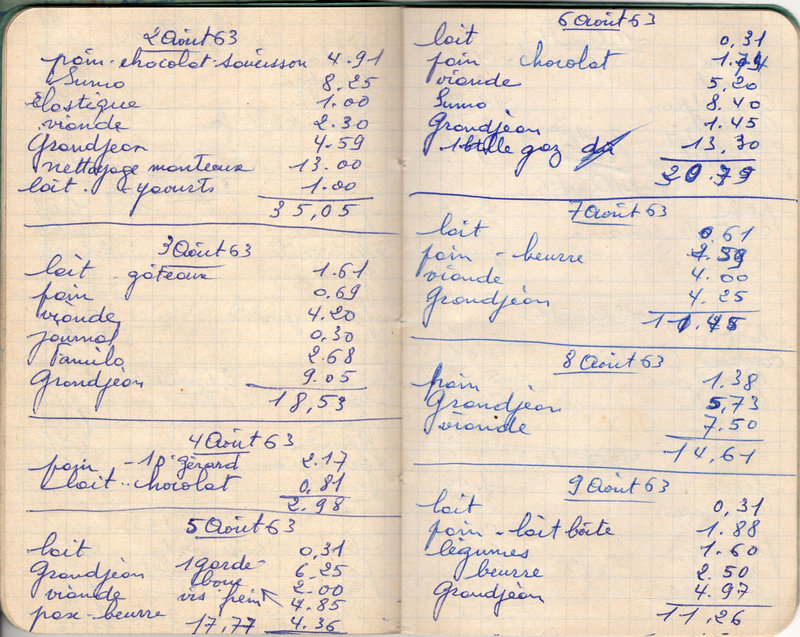 2 Août 63
pain - chocolat - saucisson 4.91
Sumo 8,25
élastique 1.00
viande 2.30
Grandjean 4.59
nettoyage manteaux 13.00
lait - yaourts 1.00
35,05
3 Août 63
lait - gâteaux 1.61
pain 0.69
viande 4.20
journal 0,30
Familo 2.68
Grandjean 9.05
18,53
4 Août 63
pain - 10 Gérard 2.17
lait - chocolat 0,81
2.98
5 Août 63
lait 0,31
Grandjean 1 garde- 6.25
boue
viande vis frein 2.00
4.85
pax - beurre 17,77 4.36
6 Août 63
lait 0,31
pain chocolat
viande 5,20
Sumo 8.40
Grandjean 1.45
1 btlle gaz 13,30
7 Août 63
lait 0,61
pain - beurre
viande 4.00
Grandjean 4.25
8 Août 63
pain 1.38
Grandjean 5,73
viande 7.50
14,61
9 Août 63
lait 0,31
pain - lait bâte 1.88
légumes 1.60
beurre 2.50
Grandjean 4.97
11,26